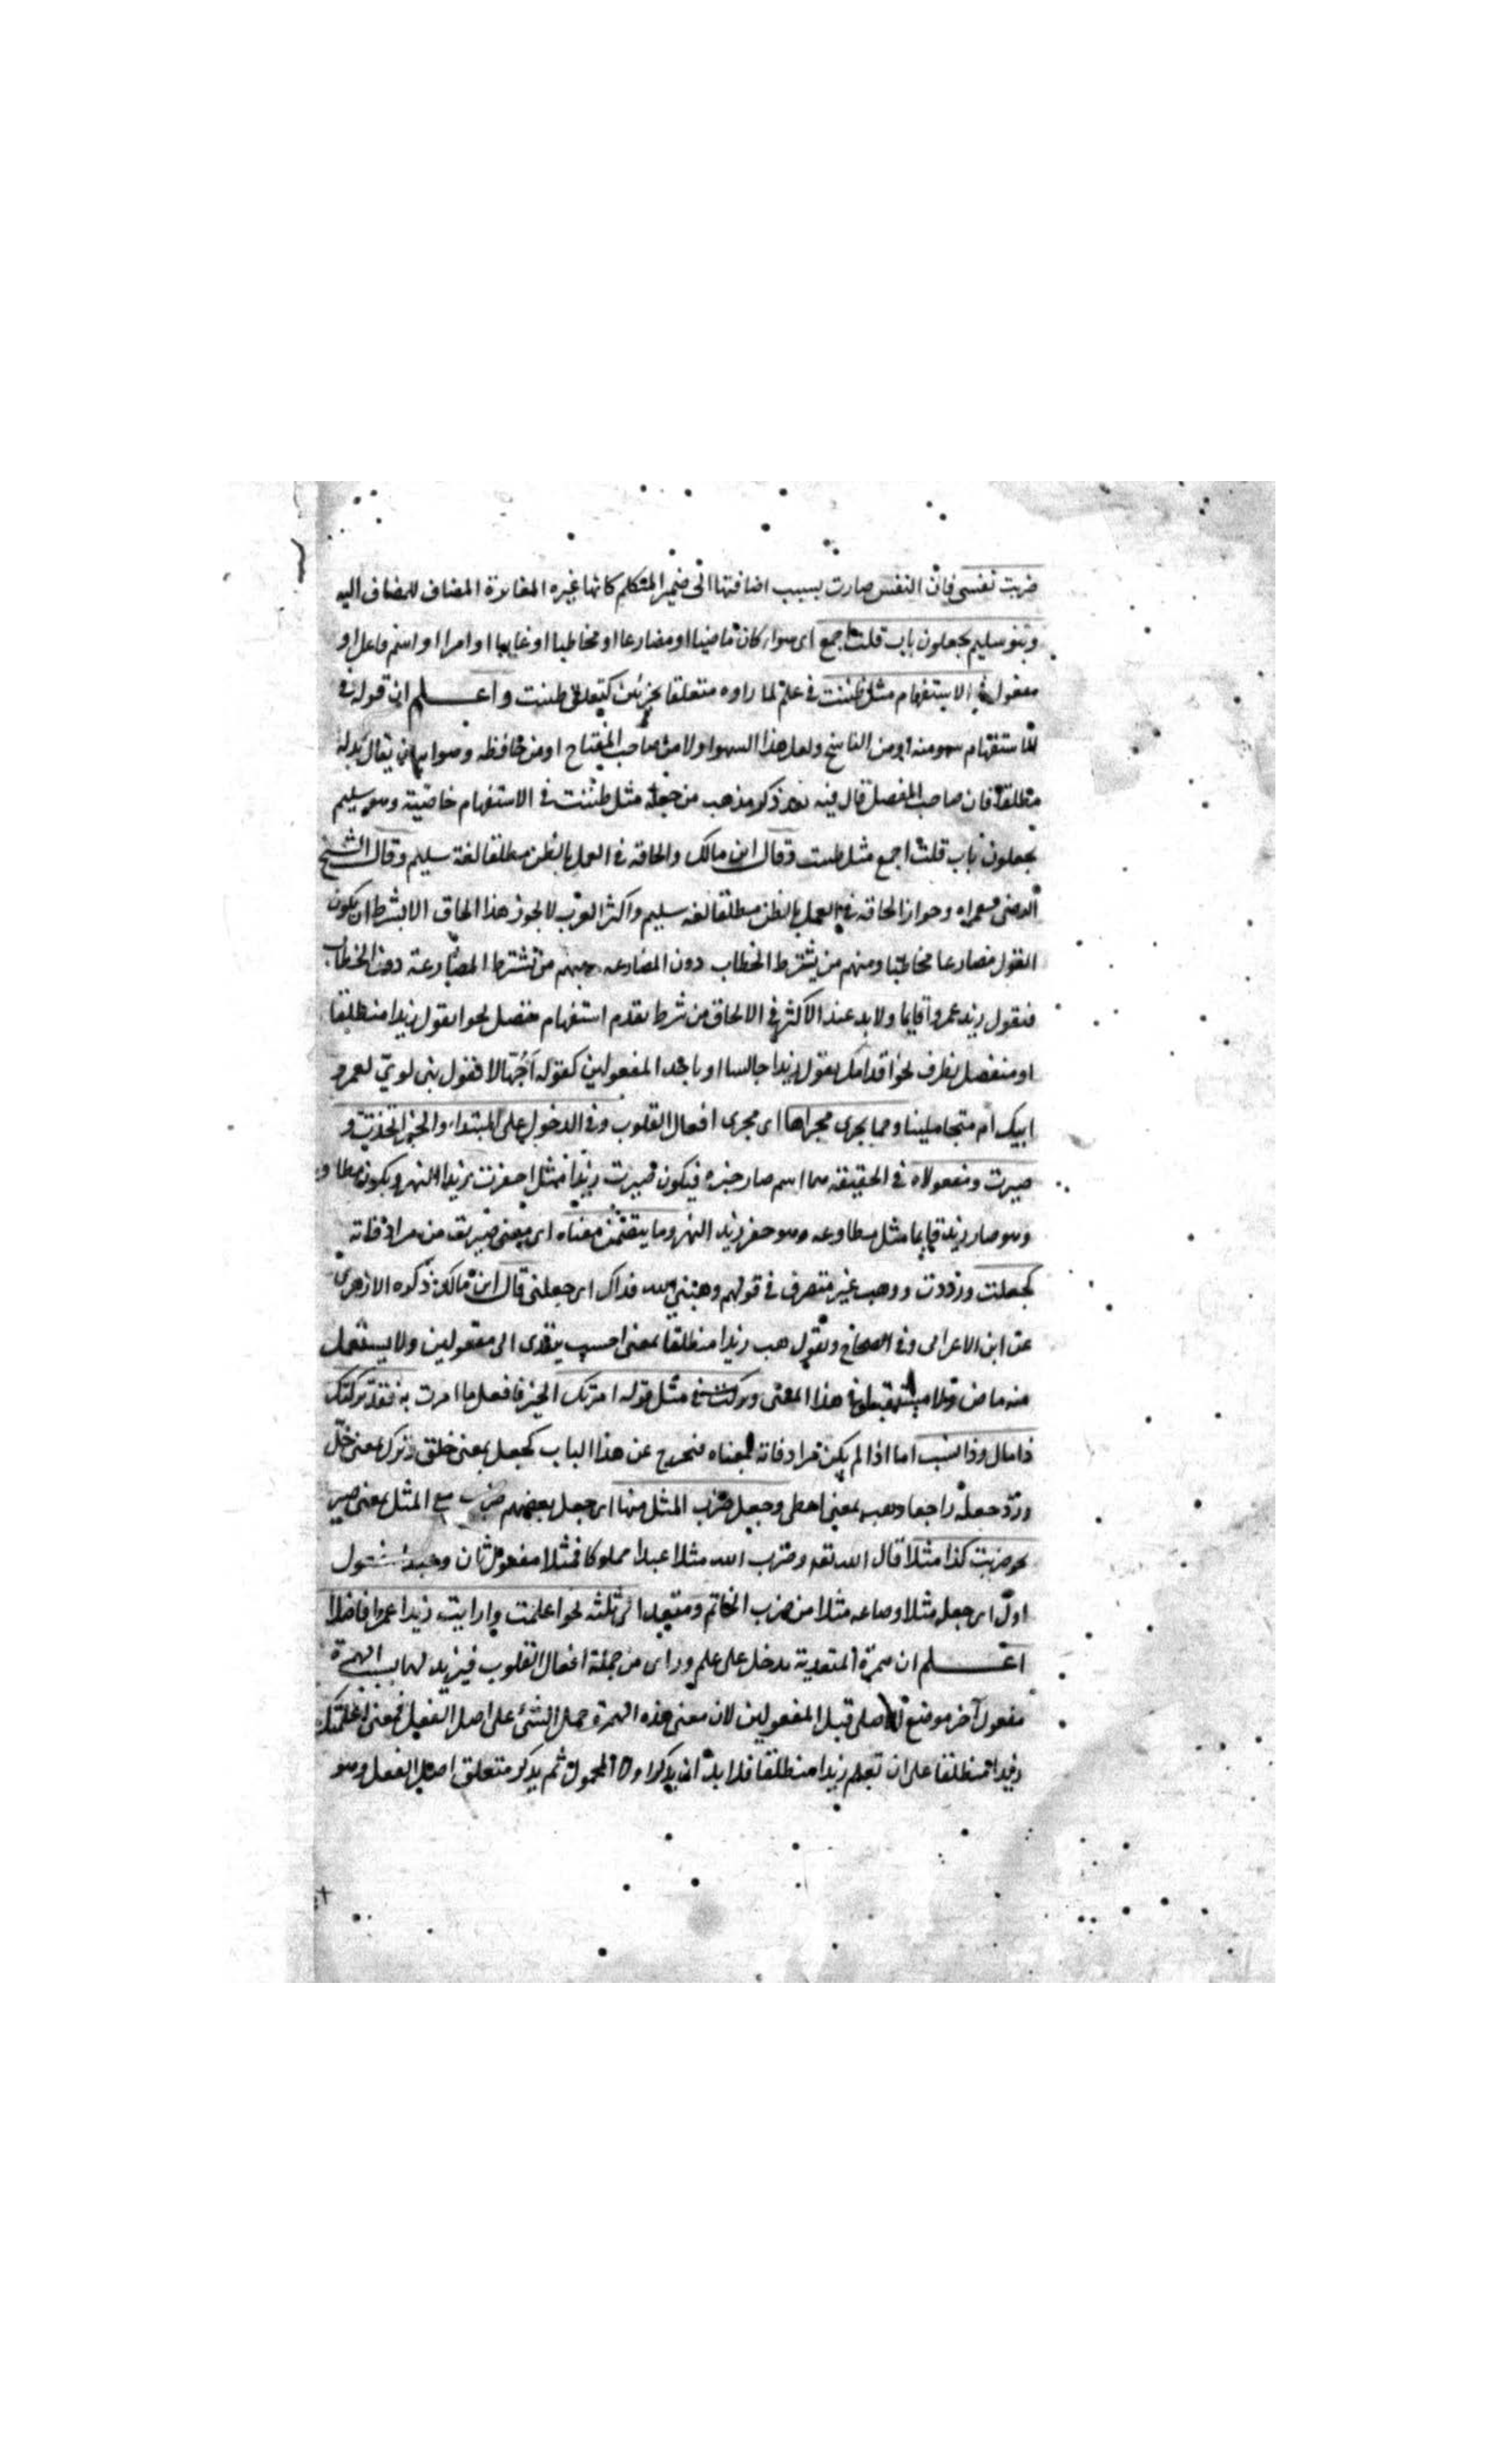 ضربت نفسى فان النفس صارت بسبب اضافتها الى ضمير المتكلم كانها غيره المغايرة المضاف للمضاف اليه
وبنو سليم يجعلون باب قلت اجمع اى سواء كان ماضيا او مضارعا او مخاطبا او غايبا او امرا او اسم فاعل او
مفعول فى الاستفهام مثل ظننت فى علم لما راوه متعلقا بجزئين كتعلق ظننت واعلم ان قوله فى
الاستفهام سهو منه او من الناسخ ولعل هذا السهو اولا من صاحب المفتاح او من حافظه وصوابه ان يقال بدله
مطلقا فان صاحب المفصل قال فيه بعد ذكر مذهب من جعله مثل ظننت فى الاستفهام خاصة وبنو سليم
يجعلون باب قلت اجمع مثل ظننت وقال ابن مالك والحاقه فى العمل بالظن مطلقا لغة سليم وقال الشيخ
الرضى وجواز الحاقه فى العمل بالظن مطلقا لغة سليم واكثر العرب لا يجوز هذا الحاق الا بشرط ان يكون
القول مضارعا مخاطبا ومنهم من يشترط الخطاب دون المضارعه ومنهم من يشترط المضارعة دون الخطاب
فنقول زيد عمروا قايما ولا بد عند الاكثر فى الالحاق من شرط تقدم استفهام متصل نحو اتقول زيدا منطلقا
او منفصل بظرف نحو اقدامك تقول زيدا جالسا او باحد المفعولين كقوله اجهالا تقول بنى لوىّ لعمرو
ابيك ام متجاهلينا ومما يجرى مجراها اى مجرى افعال القلوب فى الدخول على المبتداء والخبر اتخذت و
صيرت ومفعولاه فى الحقيقه هما اسم صار وخبره فيكون صيرت زيدا مثل احفرت زيدا النهر ويكون مطاو
وهو صار زيد قايما مثل مطاوعه وهو حفر زيد النهر وما يتضمن معناه اى معنى صيرته من مرادفاته
كجعلت ورددت ووهب غير متصرف فى قولهم وهبنى الله فداك اى جعلنى قال ابن مالك ذكره الازهرى
عن ابن الاعرابى وفى الصحاح وتقول هب زيدا منطلقا بمعنى احسب يتعدى الى مفعولين ولا يستعمل
منه ماض ولا مستقبل فى هذا المعنى وتركت فى مثل قوله امرتك الخير فافعل ما امرت به فقد تركتك
ذا مال وذا نشب اما اذا لم يكن مرادفاته لمعناه فتخرج عن هذا الباب كجعل بمعنى خلق وترك بمعنى خلّى
وردّ جعله راجعا ووهب بمعنى اعطى وجعل ضرب المثل منها اى جعل بعضهم ضرب مع المثل بمعنى صير
نحو ضربت كذا مثلا قال الله تعه وضرب الله مثلا عبدا مملوكا فمثلا مفعول ثان وعبدا مفعول
اول اى جعله مثلا او صاغه مثلا من ضرب الخاتم ومتعد الى ثلثه نحو اعلمت واراىت زيدا عمرا فاضلا
اعلم ان همزة المتعدية تدخل على علم وراى من جملة افعال القلوب فيزيد لهما بسبب الهمزة
مفعول آخر موضع الاصلى قبل المفعولين لان معنى هذه الهمزة حمل الشئ على اصل الفعل فمعنى اعلمتك
زيدا منطلقا على ان تعلم زيدا منطلقا فلا بد ان يذكر اولا المحمول ثم يذكر متعلق اصل الفعل وهو